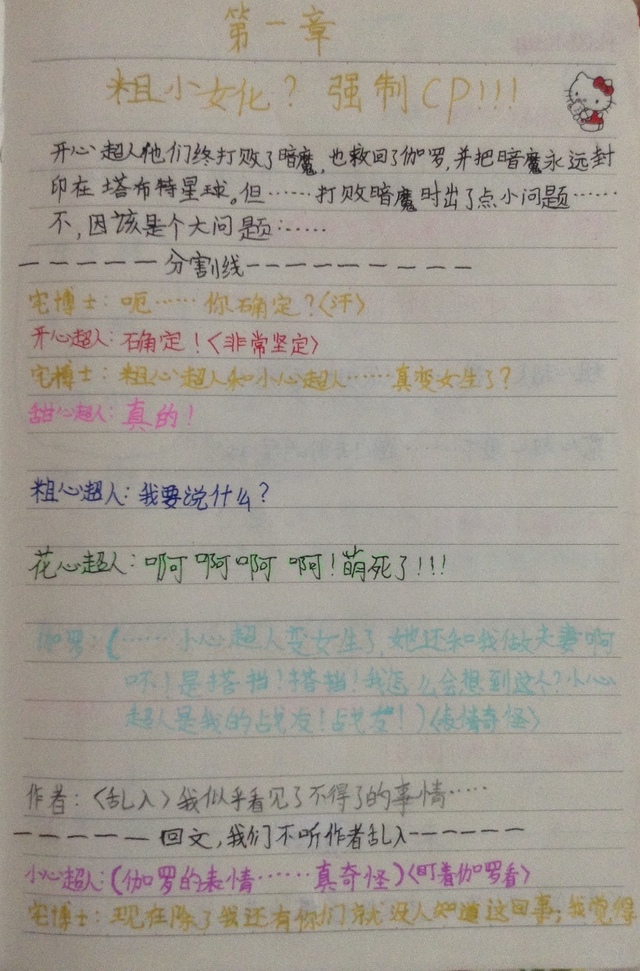 第一章
粗小女化？强制CP!!!
开心超人他们终打败了暗魔,也救回了伽罗,并把暗魔永远封
印在塔布特星球。但……打败暗魔时出了点小问题……
不,因该是个大问题……
—————分割线—————————
宅博士：呃……你确定？〈汗〉
开心超人：确定！〈非常坚定〉
宅博士：粗心超人和小心超人……真变女生了？
甜心超人：真的！
粗心超人：我要说什么？
花心超人：啊啊啊啊！萌死了!!!
伽罗：(……小心超人变女生了,她还和我做夫妻啊
呸！是搭档！搭档！我怎么会想到这个？小心
超人是我的战友！战友！)〈表情奇怪〉
作者：〈乱入〉我似乎看见了不得了的事情……
—————回文,我们不听作者乱入——————
小心超人：(伽罗的表情……真奇怪)〈盯着伽罗看〉
宅博士：现在除了我还有你们就没人知道这回事;我觉得